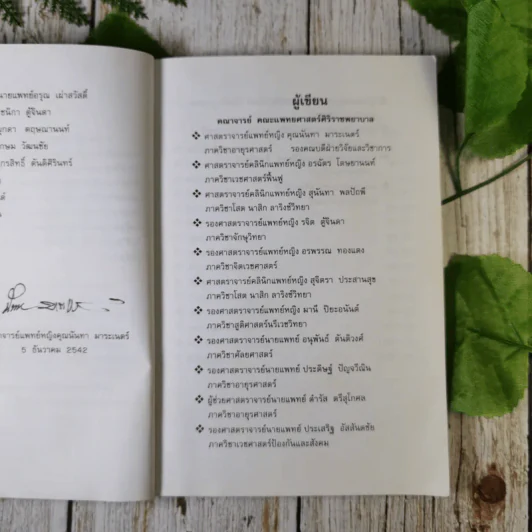 นายแพทย์อรุณ เผ่าสวัสดิ์
ชนิกา ตู้จินดา
กฤษณานนท์
วัฒนชัย
ตันติศิรินทร์
จารย์แพทย์หญิงคุณนันทา มาระเนตร์
5 ธันวาคม 2542
ผู้เขียน
คณาจารย์ คณะแพทยศาสตร์ศิริราชพยาบาล
❖ ศาสตราจารย์แพทย์หญิง คุณนันทา มาระเนตร์
ภาควิชาอายุรศาสตร์ รองคณบดีฝ่ายวิจัยและวิชาการ
❖ ศาสตราจารย์คลินิกแพทย์หญิง อรฉัตร โตษยานนท์
ภาควิชาเวชศาสตร์ฟื้นฟู
❖ ศาสตราจารย์คลินิกแพทย์หญิง สุนันทา พลปัถพี
ภาควิชาโสต นาสิก ลาริงซ์วิทยา
❖ รองศาสตราจารย์แพทย์หญิง รจิต ตู้จินดา
ภาควิชาจักษุวิทยา
❖ รองศาสตราจารย์แพทย์หญิง อรพรรณ ทองแตง
ภาควิชาจิตเวชศาสตร์
❖ ศาสตราจารย์คลินิกแพทย์หญิง สุจิตรา ประสานสุข
ภาควิชาโสต นาสิก ลาริงซ์วิทยา
❖ รองศาสตราจารย์แพทย์หญิง มานี ปิยะอนันต์
ภาควิชาสูติศาสตร์นรีเวชวิทยา
❖ รองศาสตราจารย์นายแพทย์ อนุพันธ์ ตันติวงศ์
ภาควิชาศัลยศาสตร์
❖ รองศาสตราจารย์นายแพทย์ ประดิษฐ์ ปัญจวีณิน
ภาควิชาอายุรศาสตร์
❖ ผู้ช่วยศาสตราจารย์นายแพทย์ ดำรัส ตรีสุโกศล
ภาควิชาอายุรศาสตร์
❖ รองศาสตราจารย์นายแพทย์ ประเสริฐ อัสสันตชัย
ภาควิชาเวชศาสตร์ป้องกันและสังคม